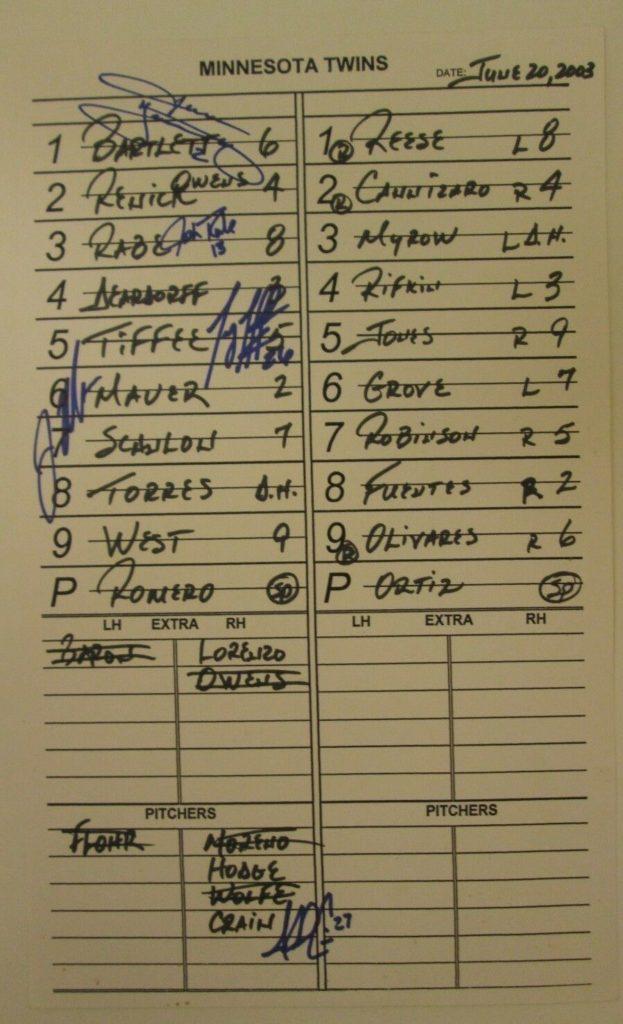 MINNESOTA TWINS
DATE: JUNE 20, 2003
1 BARTLETT 6
2 RENICK OWENS 4
3 RABE 8
18
4 3
5 TIFFEE 5
26
6 MAUER 2
7 SCANLON 7
8 TORRES D.H.
9 WEST 9
P ROMERO SP
LH EXTRA RH
BARON LORENZO
OWENS
PITCHERS
FLOHR MORENO
HODGE
WOLFE
CRAIN 27
1 R REESE L 8
2 R CANNIZARO R 4
3 MYROW L D.H.
4 RIFKIN L 3
5 JONES R 9
6 GROVE L 7
7 ROBINSON R 5
8 FUENTES R 2
9 R OLIVARES R 6
P ORTIZ SP
LH EXTRA RH
PITCHERS